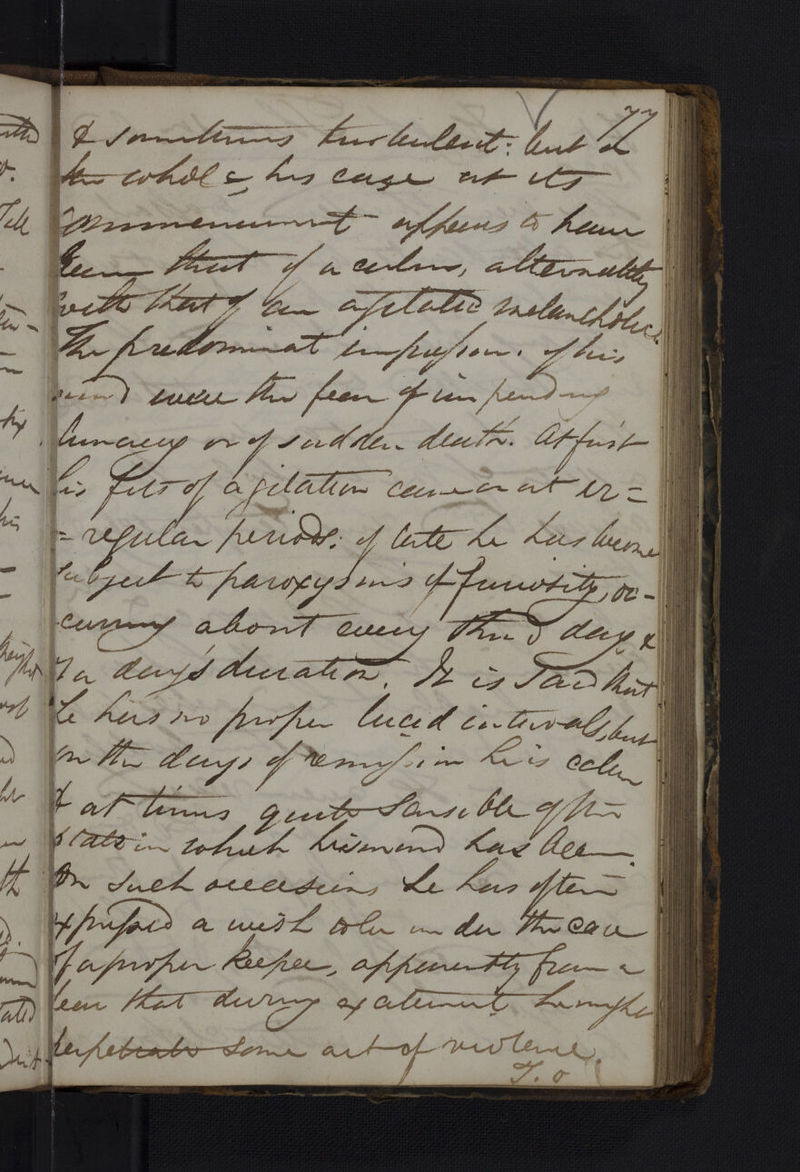 77
& sometimes turbulent: but on
the whole, his case at its
commencement appears to have
been that of a calm, alternately
with that of an agitated melancholic.
The predominat impressions of his
mind were the fear of impending
lunacy or of sudden death. At first
his fits of agitation came on at ir=
=regular periods: of late he has become
subject to paroxysms of furiosity, oc-
curring about every third day &
of a day's duration. It is said that
he has no proper lucid intervals, but
on the days of remission he is calm
& at times quite sensible of the
state in which his mind has been.
On such occasions he has often
expressed a wish to be under the care
of a proper keeper, apparently from a
fear that during excitement he might
perpetrate some act of violence.
T. o